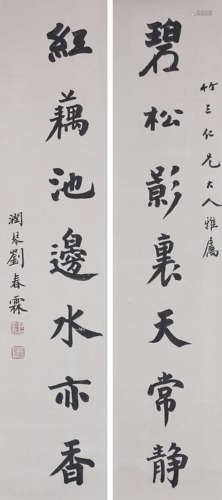 竹三仁兄大人雅屬
碧松影裏天常靜
紅藕池邊水亦香
潤琴劉春霖